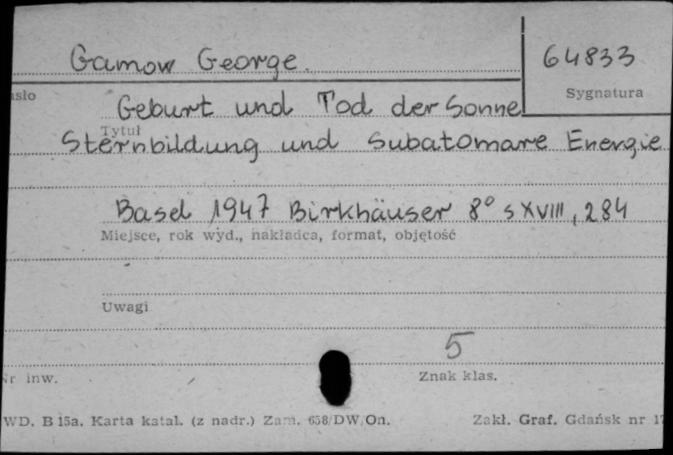 Gamow George.
64833
Sygnatura
Geburt und Tod der Sonne
Tytuł
Sternbildung und Subatomare Energie
Basel 1947 Birkhäuser 8° s XVIII, 284
Miejsce, rok wyd., nakładca, format, objętość
Uwagi
5
Nr inw.
Znak klas.
WD. B 15a. Karta katal. (z nadr.) Zam. 658/DW/On.
Zakł. Graf. Gdańsk nr